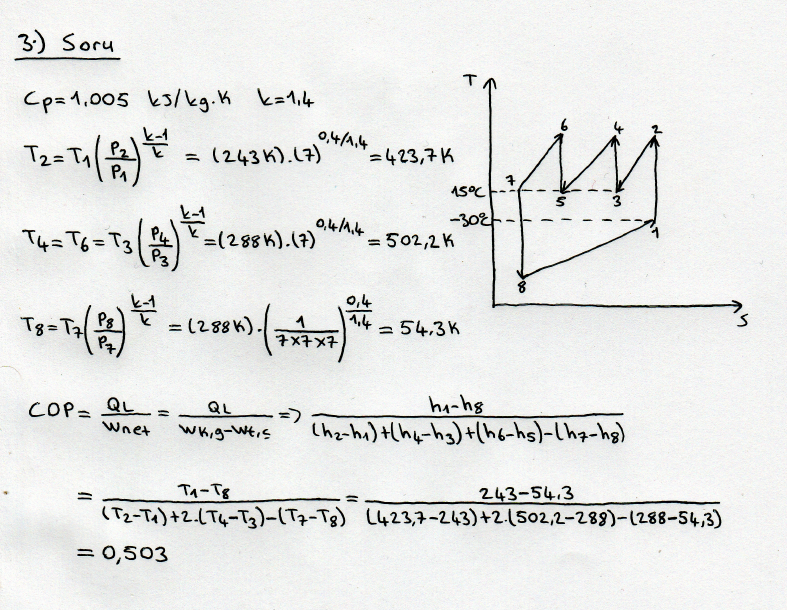 3.) Soru
Cp=1,005 kJ/kg.K k=1,4
T2=T1(P2/P1)^(k-1/k) = (243K).(7)^0,4/1,4 = 423,7K
T4=T6=T3(P4/P3)^(k-1/k) =(288K).(7)^0,4/1,4 = 502,2K
T8=T7(P8/P7)^(k-1/k) = (288K).(1/7x7x7)^(0,4/1,4) = 54,3K
T
6 4 2
7
15°C
5 3
-30°C
1
8
S
COP= QL/Wnet = QL/Wk,g-Wt,s => h1-h8/(h2-h1)+(h4-h3)+(h6-h5)-(h7-h8)
= T1-T8/(T2-T1)+2.(T4-T3)-(T7-T8) = 243-54,3/(423,7-243)+2.(502,2-288)-(288-54,3)
= 0,503